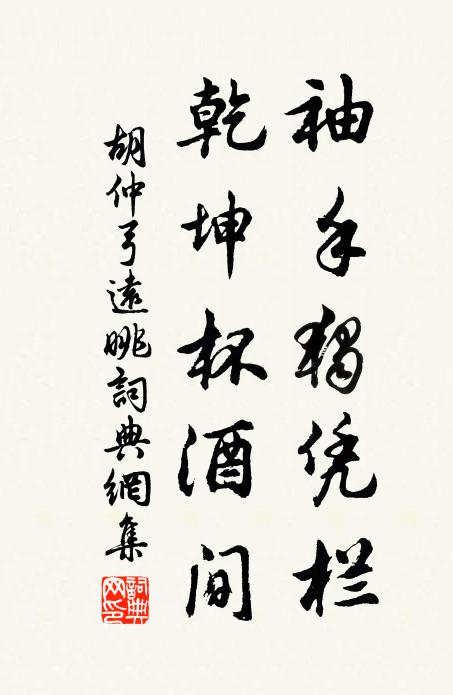 袖手独凭栏
乾坤杯酒间
胡仲弓遠眺詞典網集
詞典网印